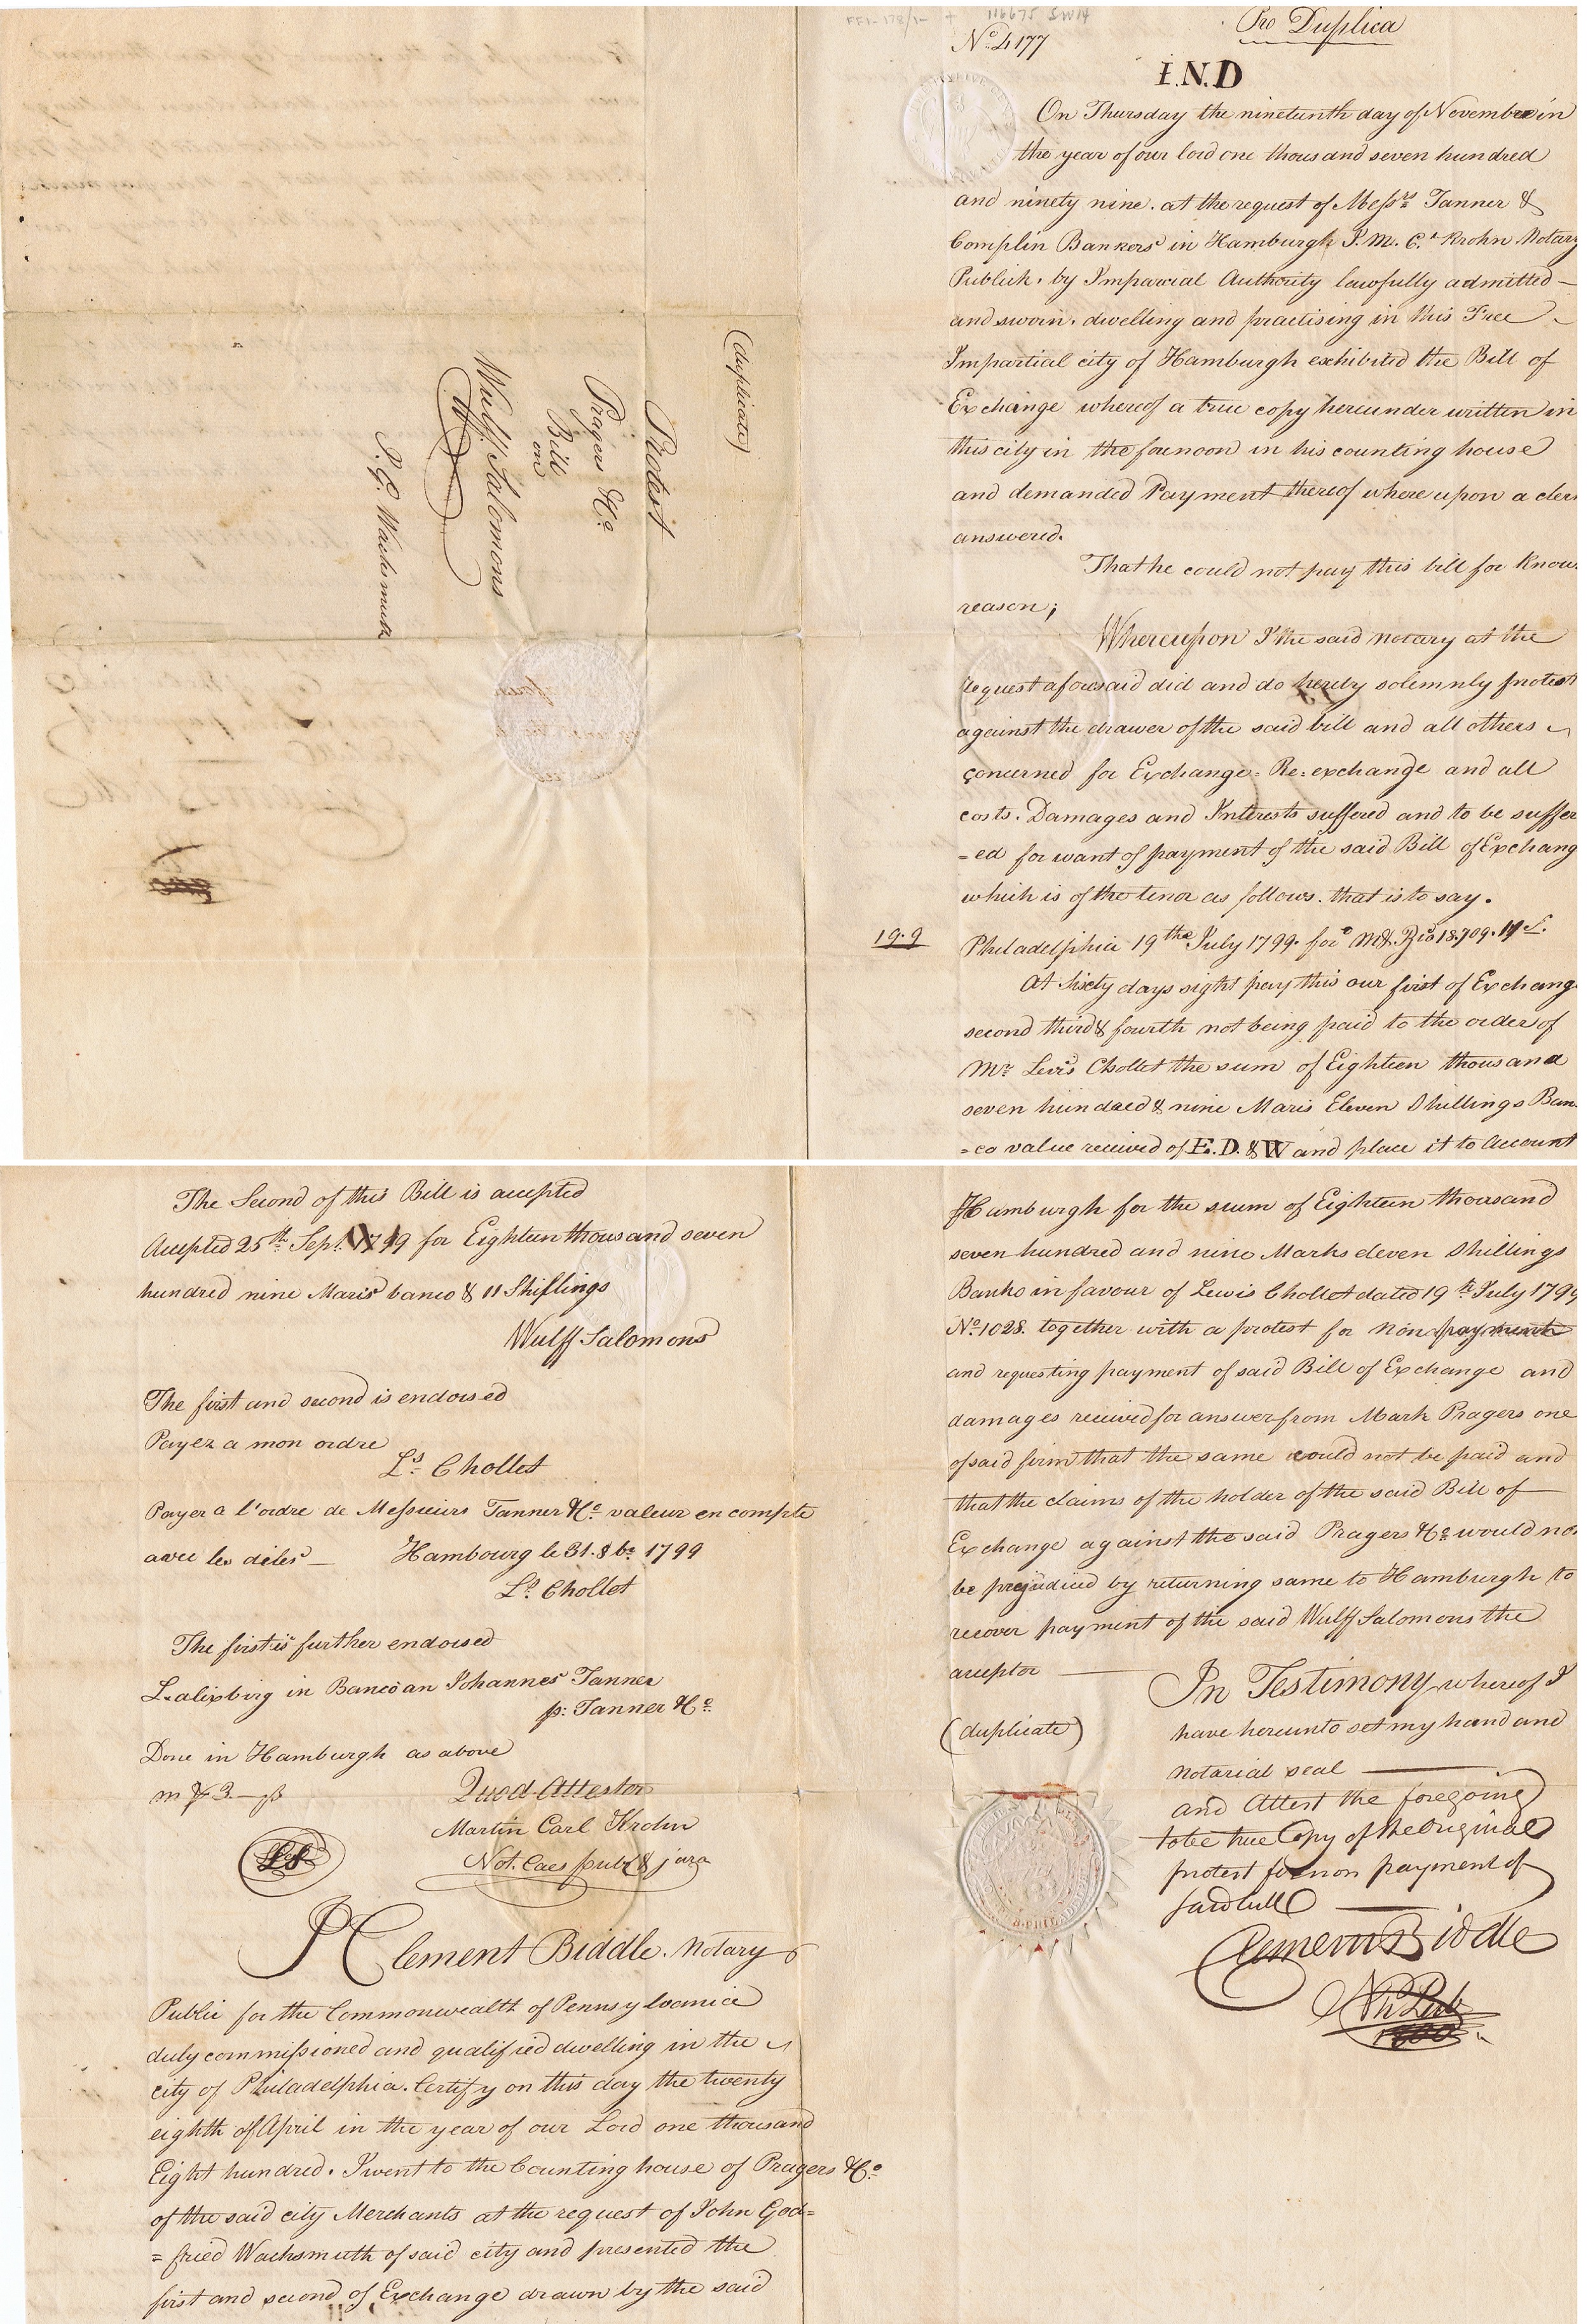 (duplicate)
Protest
Pragers & Co
Bill
on
Wulff Salomons
J. G. Wachsmuth
116675
Pro Duplica
No. 4177
I.N.D
On Thursday the nineteenth day of November in
the year of our lord one thousand seven hundred
and ninety nine. at the request of Messrs. Tanner &
Complin Bankers in Hamburgh I. M. C. Krohn Notary
Publick. by Imparcial Authority lawfully admitted —
and sworn. dwelling and practising in this Free
Impartial city of Hamburgh exhibited the Bill of
Exchange whereof a true copy hereunder written in
this city in the forenoon in his counting house
and demanded Payment thereof where upon a cler
answered.
That he could not pay this bill for know
reason;
Whereupon I the said notary at the
request aforesaid did and do hereby solemnly protest
against the drawer of the said bill and all others
concerned for Exchange. Re-exchange and all
costs. Damages and Interests suffered and to be suffer
=ed for want of payment of the said Bill of Exchang
which is of the tenor as follows. that is to say.
19.9
Philadelphia 19th July 1799. for 18.709. 11
At sixty days sight pay this our first of Exchang
second third & fourth not being paid to the order of
Mr. Levis Chollet the sum of Eighteen thousand
seven hundred & nine Maris Eleven Shillings Ban
=co value received of E.D.&W and place it to Account
The Second of this Bill is accepted
Accepted 25th Sept. 1799 for Eighteen thousand seven
hundred nine Maris banco & 11 Shillings
Wulff Salomons
The first and second is endorsed
Payez a mon ordre
Ls. Chollet
Payer a l'ordre de Messieurs Tanner & Co. valeur en compte
avec les diles — Hambourg le 31. 8 br. 1799
Ls. Chollet
The first is further endorsed
in Banco an Johannes Tanner
p: Tanner & Co.
Done in Hamburgh as above
m 3.—
Quod Attestor
Martin Carl Krohn
Not. Caes publ & jura
LS
I Clement Biddle. Notary
Public for the Commonwealth of Pennsylvania
duly commissioned and qualified dwelling in the
city of Philadelphia. Certify on this day the twenty
eighth of April in the year of our Lord one thousand
Eight hundred. I went to the Counting house of Pragers & Co.
of the said city Merchants at the request of John God=
=fried Wachsmuth of said city and presented the
first and second of Exchange drawn by the said
Hamburgh for the sum of Eighteen thousand
seven hundred and nine Marks eleven Shillings
Banko in favour of Lewis Chollet dated 19th July 1799
No. 1028. together with a protest for non payment
and requesting payment of said Bill of Exchange and
damages received for answer from Mark Pragers one
of said firm that the same could not be paid and
that the claims of the holder of the said Bill of —
Exchange against the said Pragers & Co. would not
be prejudiced by returning same to Hamburgh to
recover payment of the said Wulff Salomons the
acceptor —
(duplicate)
In Testimony whereof I
have hereunto set my hand and
notarial seal —
and Attest the foregoing
to be true Copy of the Original
protest for non payment of
said bill —
Clement Biddle
Not Pub
1800